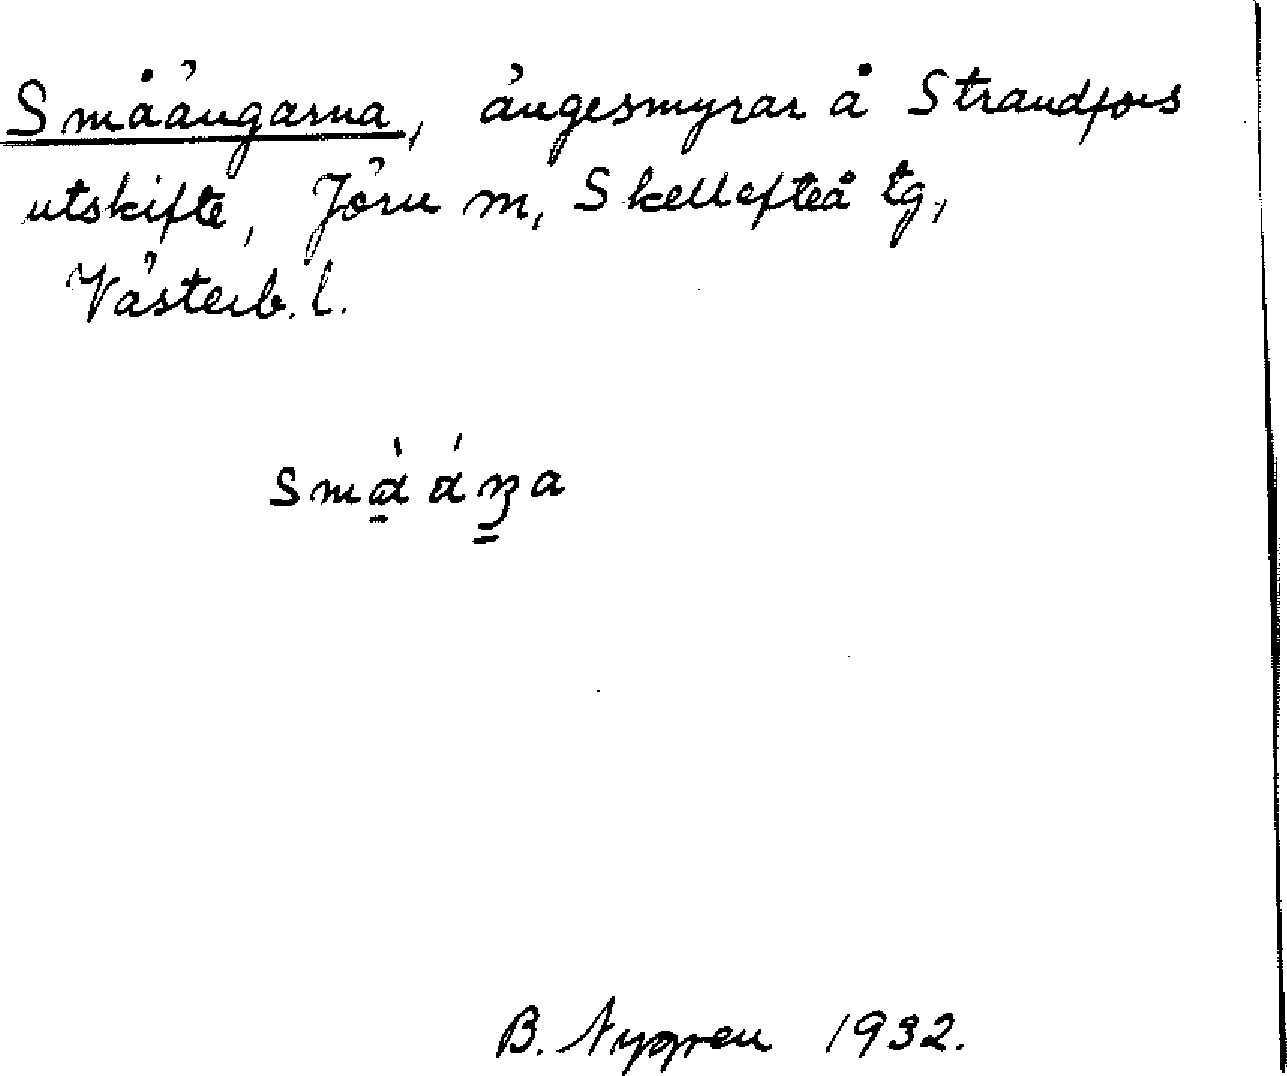 Småängarna, ängesmyrar å Strandfors
utskifte, Jörn sn, Skellefteå tg,
Västerb. l.
B. Nygren 1932.